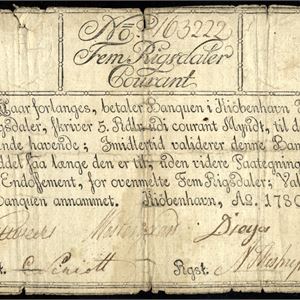 No. 163222
Fem Rigsdaler
Courant
Naar forlanges, betaler Banquen i Kiöbenhavn
igsdaler, skriver 5. Rdlr. udi courant Myndt, til d
ende havende; Imidlertid validerer denne Ban
ddel saa længe den er til, uden videre Paategnin
Endossement, for ovennelte Fem Rigsdaler; Val
anquen annammet. Kiöbenhavn, Ao. 178
t.
Rgst.